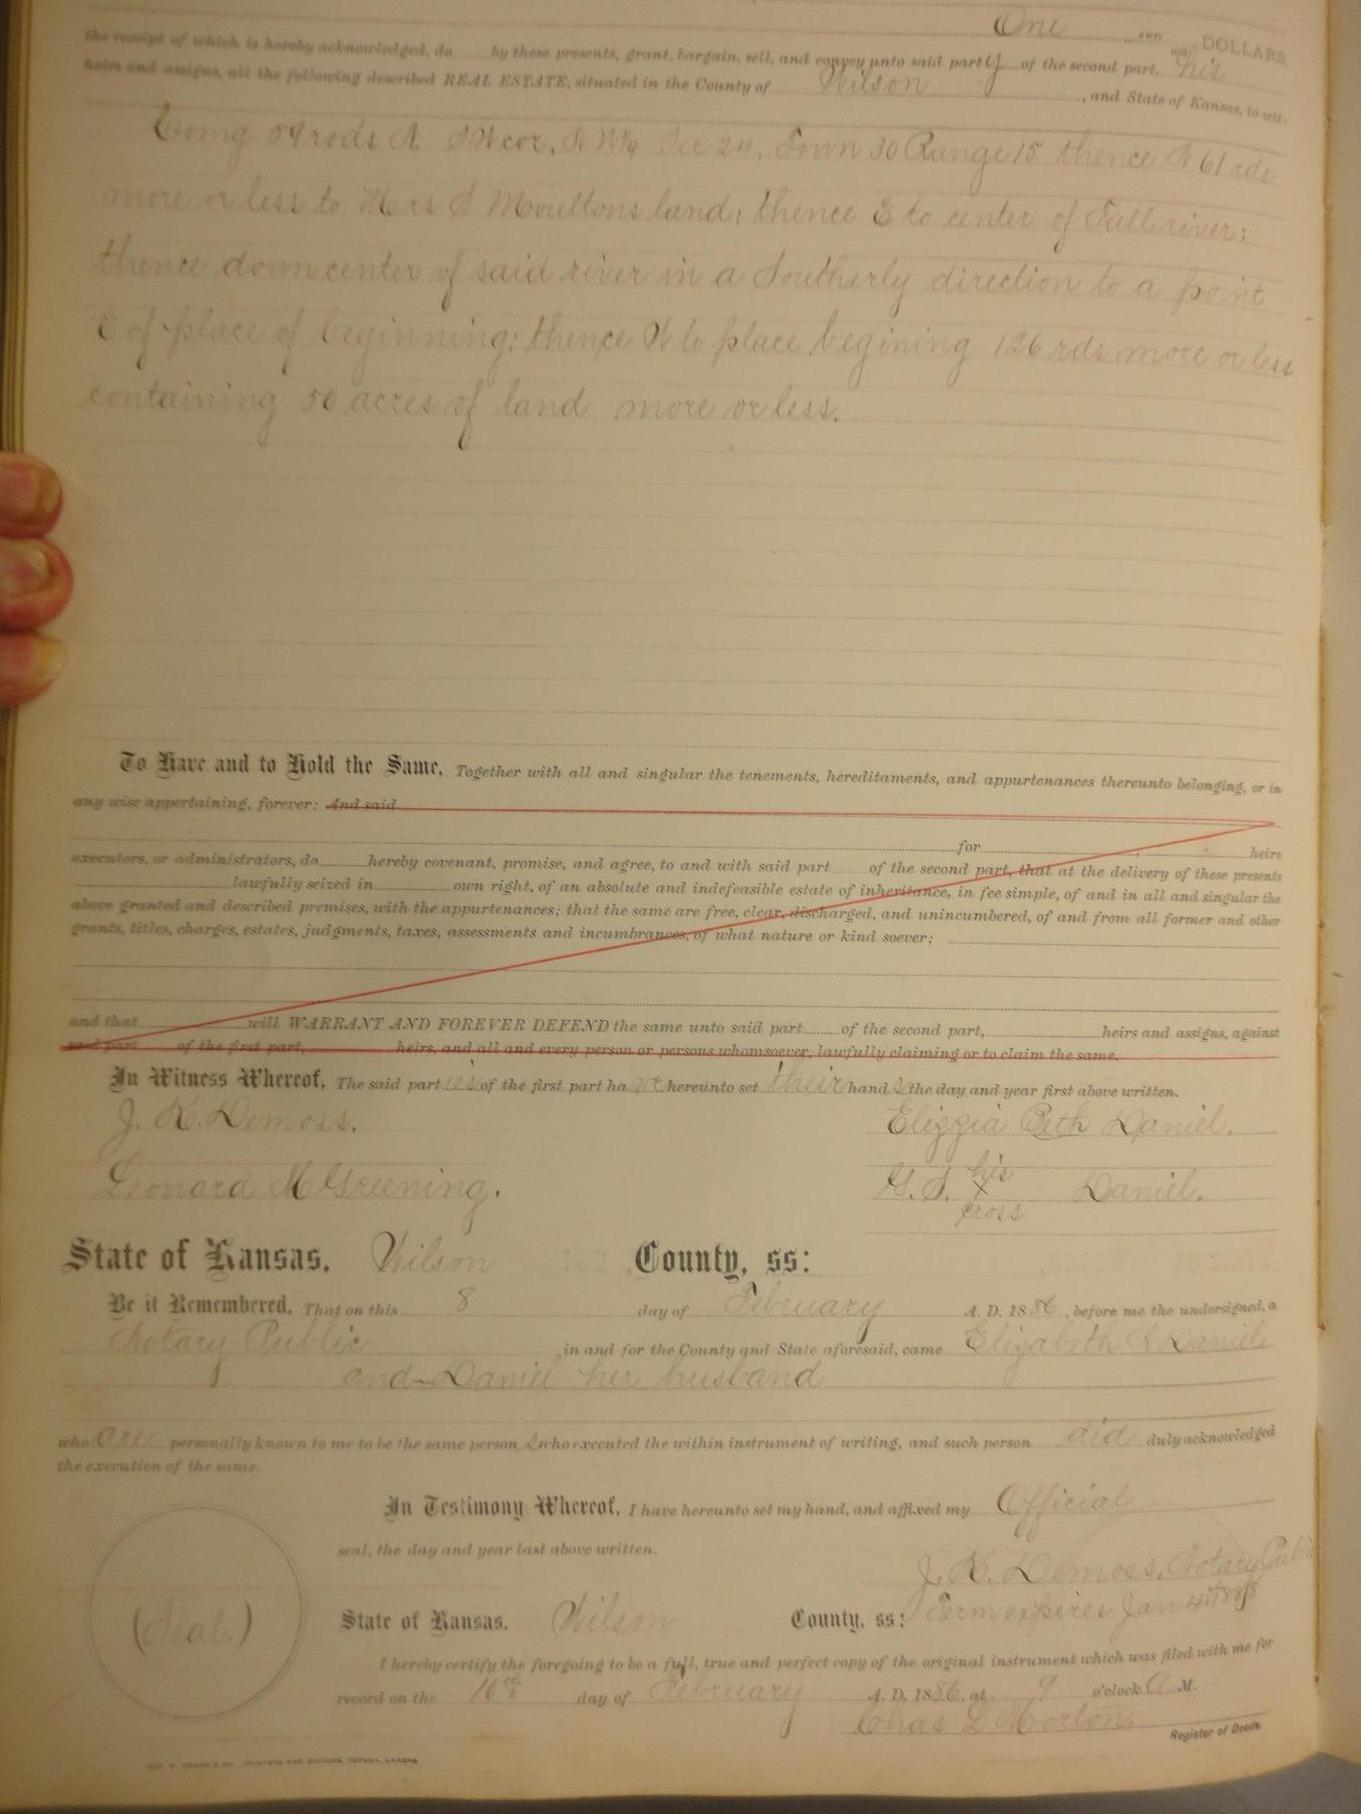 One AND no/100 DOLLARS
the receipt of which is hereby acknowledged, do by these presents, grant, bargain, sell, and convey unto said party of the second part, his
heirs and assigns, all the following described REAL ESTATE, situated in the County of Wilson, and State of Kansas, to-wit:
Comg 59 rods N. SW cor, NW¼ Sec 24, Town 30 Range 15 thence N 61 rds
more or less to Mrs S Moultons land; thence E to center of Fall river;
thence down center of said river in a Southerly direction to a point
E of place of beginning; thence W to place begining 126 rds more or less
containing 50 acres of land more or less.
To Have and to Hold the Same, Together with all and singular the tenements, hereditaments, and appurtenances thereunto belonging, or in
any wise appertaining, forever: And said
for heirs
executors, or administrators, do hereby covenant, promise, and agree, to and with said part of the second part, that at the delivery of these presents
lawfully seized in own right, of an absolute and indefeasible estate of inheritance, in fee simple, of and in all and singular the
above granted and described premises, with the appurtenances; that the same are free, clear, discharged, and unincumbered, of and from all former and other
grants, titles, charges, estates, judgments, taxes, assessments and incumbrances, of what nature or kind soever;
and that will WARRANT AND FOREVER DEFEND the same unto said part of the second part, heirs and assigns, against
said part of the first part, heirs, and all and every person or persons whomsoever, lawfully claiming or to claim the same.
In Witness Whereof, The said parties of the first part have hereunto set their hands the day and year first above written.
J. K. Demoss. Elizzia Beth Daniel.
Leonard McGreening. G. S. his X cross Daniel.
State of Kansas, Wilson County, ss:
Be it Remembered, That on this 8 day of February A. D. 1886, before me the undersigned, a
Notary Public in and for the County and State aforesaid, came Elizabeth Daniel
and Daniel her husband
who are personally known to me to be the same person s who executed the within instrument of writing, and such person did duly acknowledged
the execution of the same.
In Testimony Whereof, I have hereunto set my hand, and affixed my Official
seal, the day and year last above written.
J. K. Demoss, Notary Public
(Seal.) State of Kansas, Wilson County, ss: Term expires Jan 4th
I hereby certify the foregoing to be a full, true and perfect copy of the original instrument which was filed with me for
record on the 16th day of February A. D. 1886, at 9 o'clock A M.
Chas L Morton
Register of Deeds.